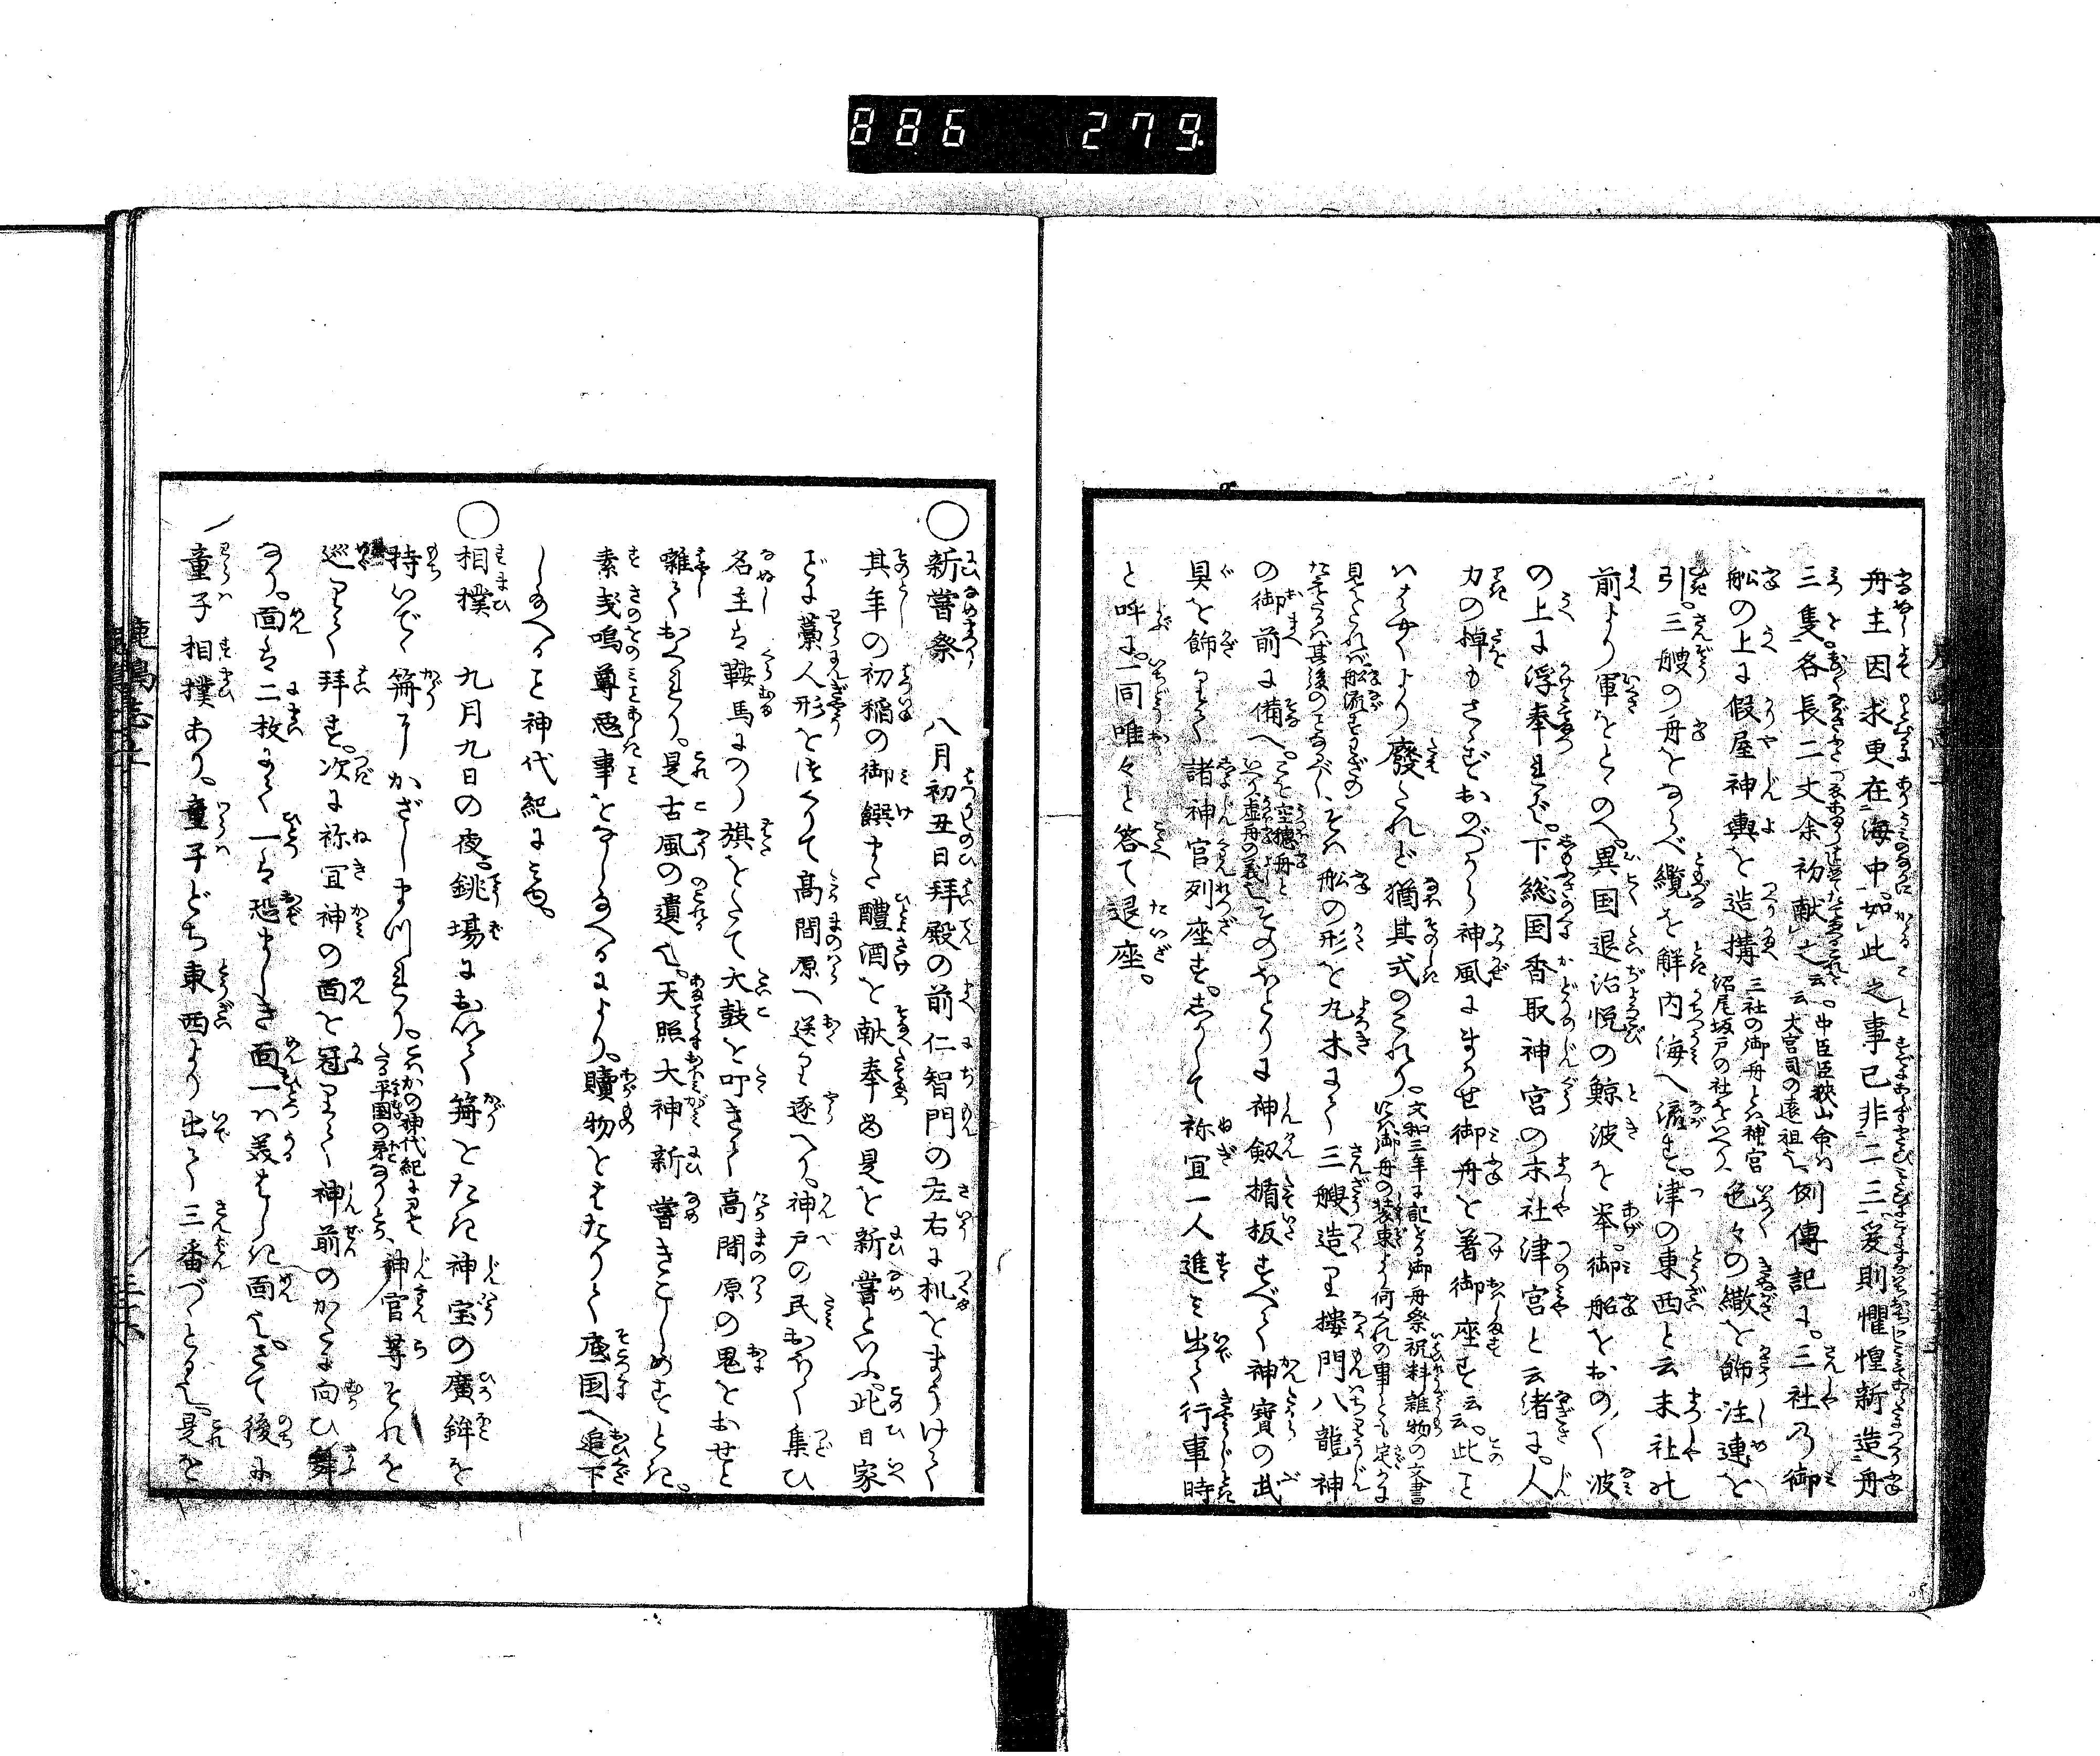 886 279
舟主因求更在海中。如此之事已非二三爰則懼惶新造舟
三隻。各長二丈余初献之云。中臣臣狭山命ハ大宮司の遠祖也例傳記に。三社乃御
舩の上に假屋神輿を造搆三社の御舟とハ神宮沼尾坂戸の社をいへり色々の繖を飾注連を
引。三艘の舟をならべ纜を解内海へ流す。津の東西と云末社の
前より軍をとゝのへ。異国退治悦の鯨波を挙。御船をおの〳〵波
の上に浮奉れば。下総国香取神宮の末社津宮と云渚に。人
力の棹もさゝずおのづから神風にまかせ御舟を著御座す云云。此こと
ハはやくより廢たれど猶其式のこれり。文和三年に記せる御舟祭祝料雑物の文書に御舟の装束より何くれの事とも定かに
見えたれバ舩流すわざのたえたるハ其後のことなるべし、そハ舩の形を丸木にて三艘造り楼門八龍神
の御前に備へ。こを空穂舟といへり虚舟の義也そのほとりに神劔楯板すべて神寶の武
具を飾りて諸神官列座す。しかして祢宜一人進み出て行事時
と呼に。一同唯々と答て退座。
○新嘗祭 八月初丑日拝殿の前仁智門の左右に机をまうけて
其年の初稲の御饌また醴酒を献奉る是を新嘗といふ。此日家
どに藁人形をつくりて高間原へ送り遂へり。神戸の民おほく集ひ
名主は鞍馬にのり旗をたて大鼓を叩きて高間原の鬼をおせと
囃てかへれり。是古風の遺也。天照大神新嘗きこしめすとき。
素戔嗚尊悪事をなし給へるにより。贖物をはたりて底国へ追下
し給へること神代紀にみゆ。
○相撲 九月九日の夜。銚場において篝をたき神宝の廣鉾を
持いで篝にかざしまつれり。こハかの神代紀に見えたる平国の剱なりとぞ、神官等それを
巡りて拝す。次に祢宜神の面を冠りて神前のかたに向ひ舞
なり。面は二枚にて一は恐ましき面一ハ美はしき面也。さて後に
童子相撲あり。童子どち東西より出て三番づゝとる也。是を
鹿嶋志下
三十六